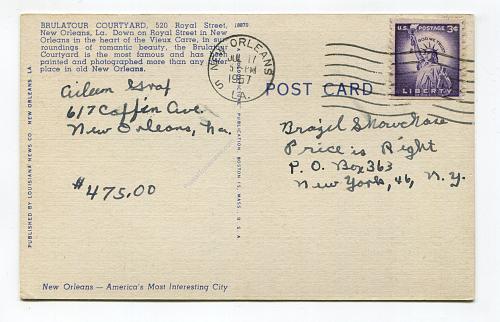 BRULATOUR COURTYARD, 520 Royal Street,
New Orleans, La. Down on Royal Street in New
Orleans in the heart of the Vieux Carre, in sur-
roundings of romantic beauty, the Brulatour
Courtyard is the most famous and has been
painted and photographed more than any other
place in old New Orleans.
Aileen Graf
617 Caffin Ave.
New Orleans, La.
#475.00
NEW ORLEANS
JUL 17
5 PM
1957
LA.
U.S. POSTAGE 3¢
IN GOD WE TRUST
LIBERTY
POST CARD
Brazil Showcase
Price is Right
P. O. Box 363
New York, 46, N. Y.
PUBLISHED BY LOUISIANE NEWS CO. NEW ORLEANS, LA
PUBLICATION BOSTON 15, MASS., U. S. A.
New Orleans — America's Most Interesting City